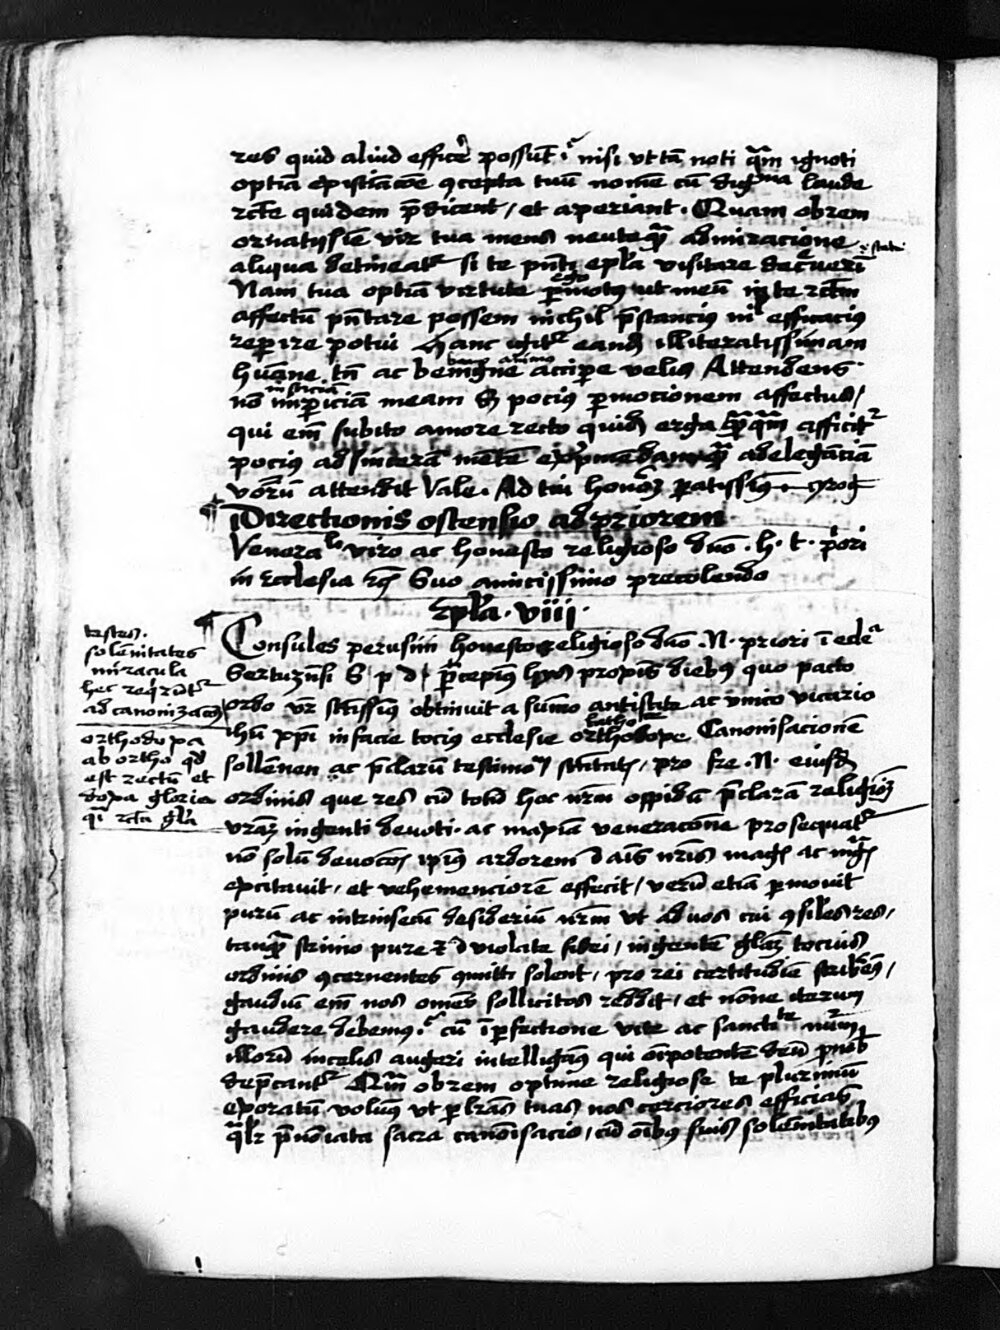 res quid aliud efficere possunt nisi ut tam noti quam ignoti
optima existimacione concepta tuum nomen cum digna laude
recte quidem predicent / et aperiant . Quam obrem
ornatissime vir tua mens neutequam admiracione
aliqua detineatur si te presenti epistola visitare decreverim
Nam tua optima virtute ego permotus ut meum in te rectum
affectum presentare possem nichil prestancius nil efficacius
reperire potui Hanc igitur eandem illiteratissimam
humane tamen ac benigne accipere velis Attendens
bono animo
non impericiam meam sed pocius permocionem affectus /
insticiam
qui enim subito amore recto quidem erga quempiam afficitur
pocius ad sinceram mentem quam ad eleganciam
verborum attendit Vale . Ad tui honorem paratissimus
Directionis ostensio ad priorem
Venerabili viro ac honesto religioso domino . H . t . priori
in Ecclesia Suo amicissimo precolendo
Epistola . viii .
Consules perusini honesto religioso domino . N . priori in ede
S p d preteritis propriis diebus quo pacto
ordo vester sanctissimus obtinuit a summo antistite ac unico vicario
ihesu christi in facie tocius ecclesie orthodoxe Canonisacionem
catho
sollennem ac preclarum testimonium sanctitatis / pro fratre . N . eiusdem
ordinis que res cum totum hoc nostrum oppidum preclaram religionem
vestram ingenti devotione ac maxima veneracione prosequatur
non solum devocionis ipsius ardorem in animis nostris magis ac magis
excitavit / et vehemenciorem effecit / verum etiam permovit
purum ac intrinsecum desiderium nostrum ut ad vos cui consiles res /
tamquam scrinio pure et inviolate fidei / ingentem gloriam tocius
ordinis concernentes committi solent / pro rei certitudine scribamus /
gaudium enim nos omnes sollicitos reddit / et nonne iterum
gaudere debemus cum perfectione vite ac sanctitate numerum
illorum in celis augeri intelligamus qui omnipotentem deum pro nobis
deprecantur Quam obrem optime religiose te plurimum
exoratum volumus ut per litteras tuas nos cerciores efficias
qualiter prenominata sacra canonisacio / cum omnibus suis solemnitatibus
testes .
solemnitates
miracula
hec requiruntur
ad canonizacionem
orthodoxa
ab ortho quod
est rectum et
doxa gloria
quasi recta gloria